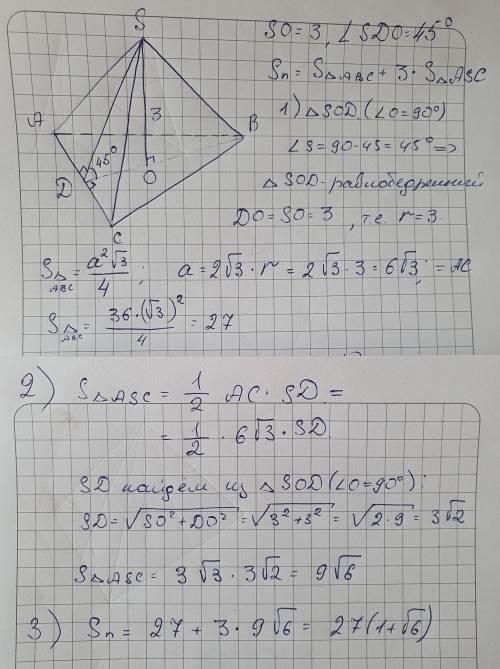 S
A
B
C
D
O
3
45°
SO = 3, ∠SDO = 45°
Sп = S△ABC + 3 · S△ASC
1) △SOD (∠O = 90°)
∠S = 90 - 45 = 45° =>
△SOD - равнобедренный
DO = SO = 3, т.е. r = 3.
S△ABC = a²√3/4; a = 2√3 · r = 2√3 · 3 = 6√3; = AC
S△ABC = 36 · (√3)²/4 = 27
2) S△ASC = 1/2 AC · SD =
= 1/2 · 6√3 · SD
SD найдём из △SOD (∠O = 90°):
SD = √(SO² + DO²) = √(3² + 3²) = √(2 · 9) = 3√2
S△ASC = 3√3 · 3√2 = 9√6
3) Sп = 27 + 3 · 9√6 = 27(1 + √6)